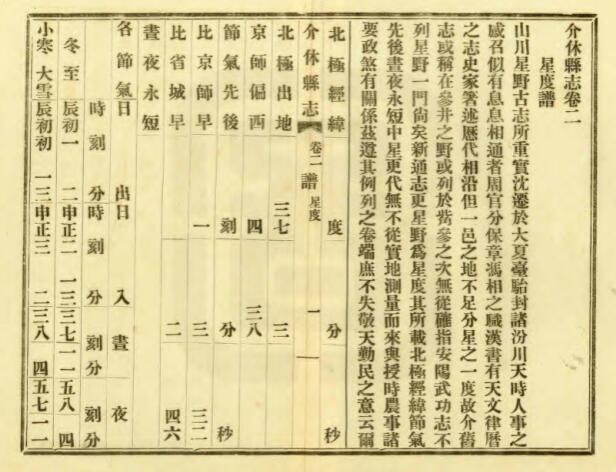 介休縣志卷二
星度譜
山川星野古志所重實沈遷於大夏臺駘封諸汾川天時人事之
感召似有息息相通者周官分保章馮相之職漢書有天文律曆
之志史家著述歷代相沿但一邑之地不足分星之一度故介舊
志或稱在參井之野或列於觜參之次無從確指安陽武功志不
列星野一門尙矣新通志更星野爲星度其所載北極經緯節氣
先後晝夜永短中星更代無不從實地測量而來與授時農事諸
要政煞有關係茲遵其例列之卷端庶不失敬天勤民之意云爾
北極經緯 度 分 秒
介休縣志 卷二 譜 星度 一
北極出地 三七 三
京師偏西 四 三八
節氣先後 刻 分 秒
比京師早 一 三 三二
比省城早 二 四六
晝夜永短
各節氣 日出 日入 晝 夜
時刻 分 時刻 分 刻分 刻分
冬至 辰初一 二 申正二 一三 三七 一一 五八 四
小寒 大雪 辰初初 一三 申正三 二 三八 四 五七 一一